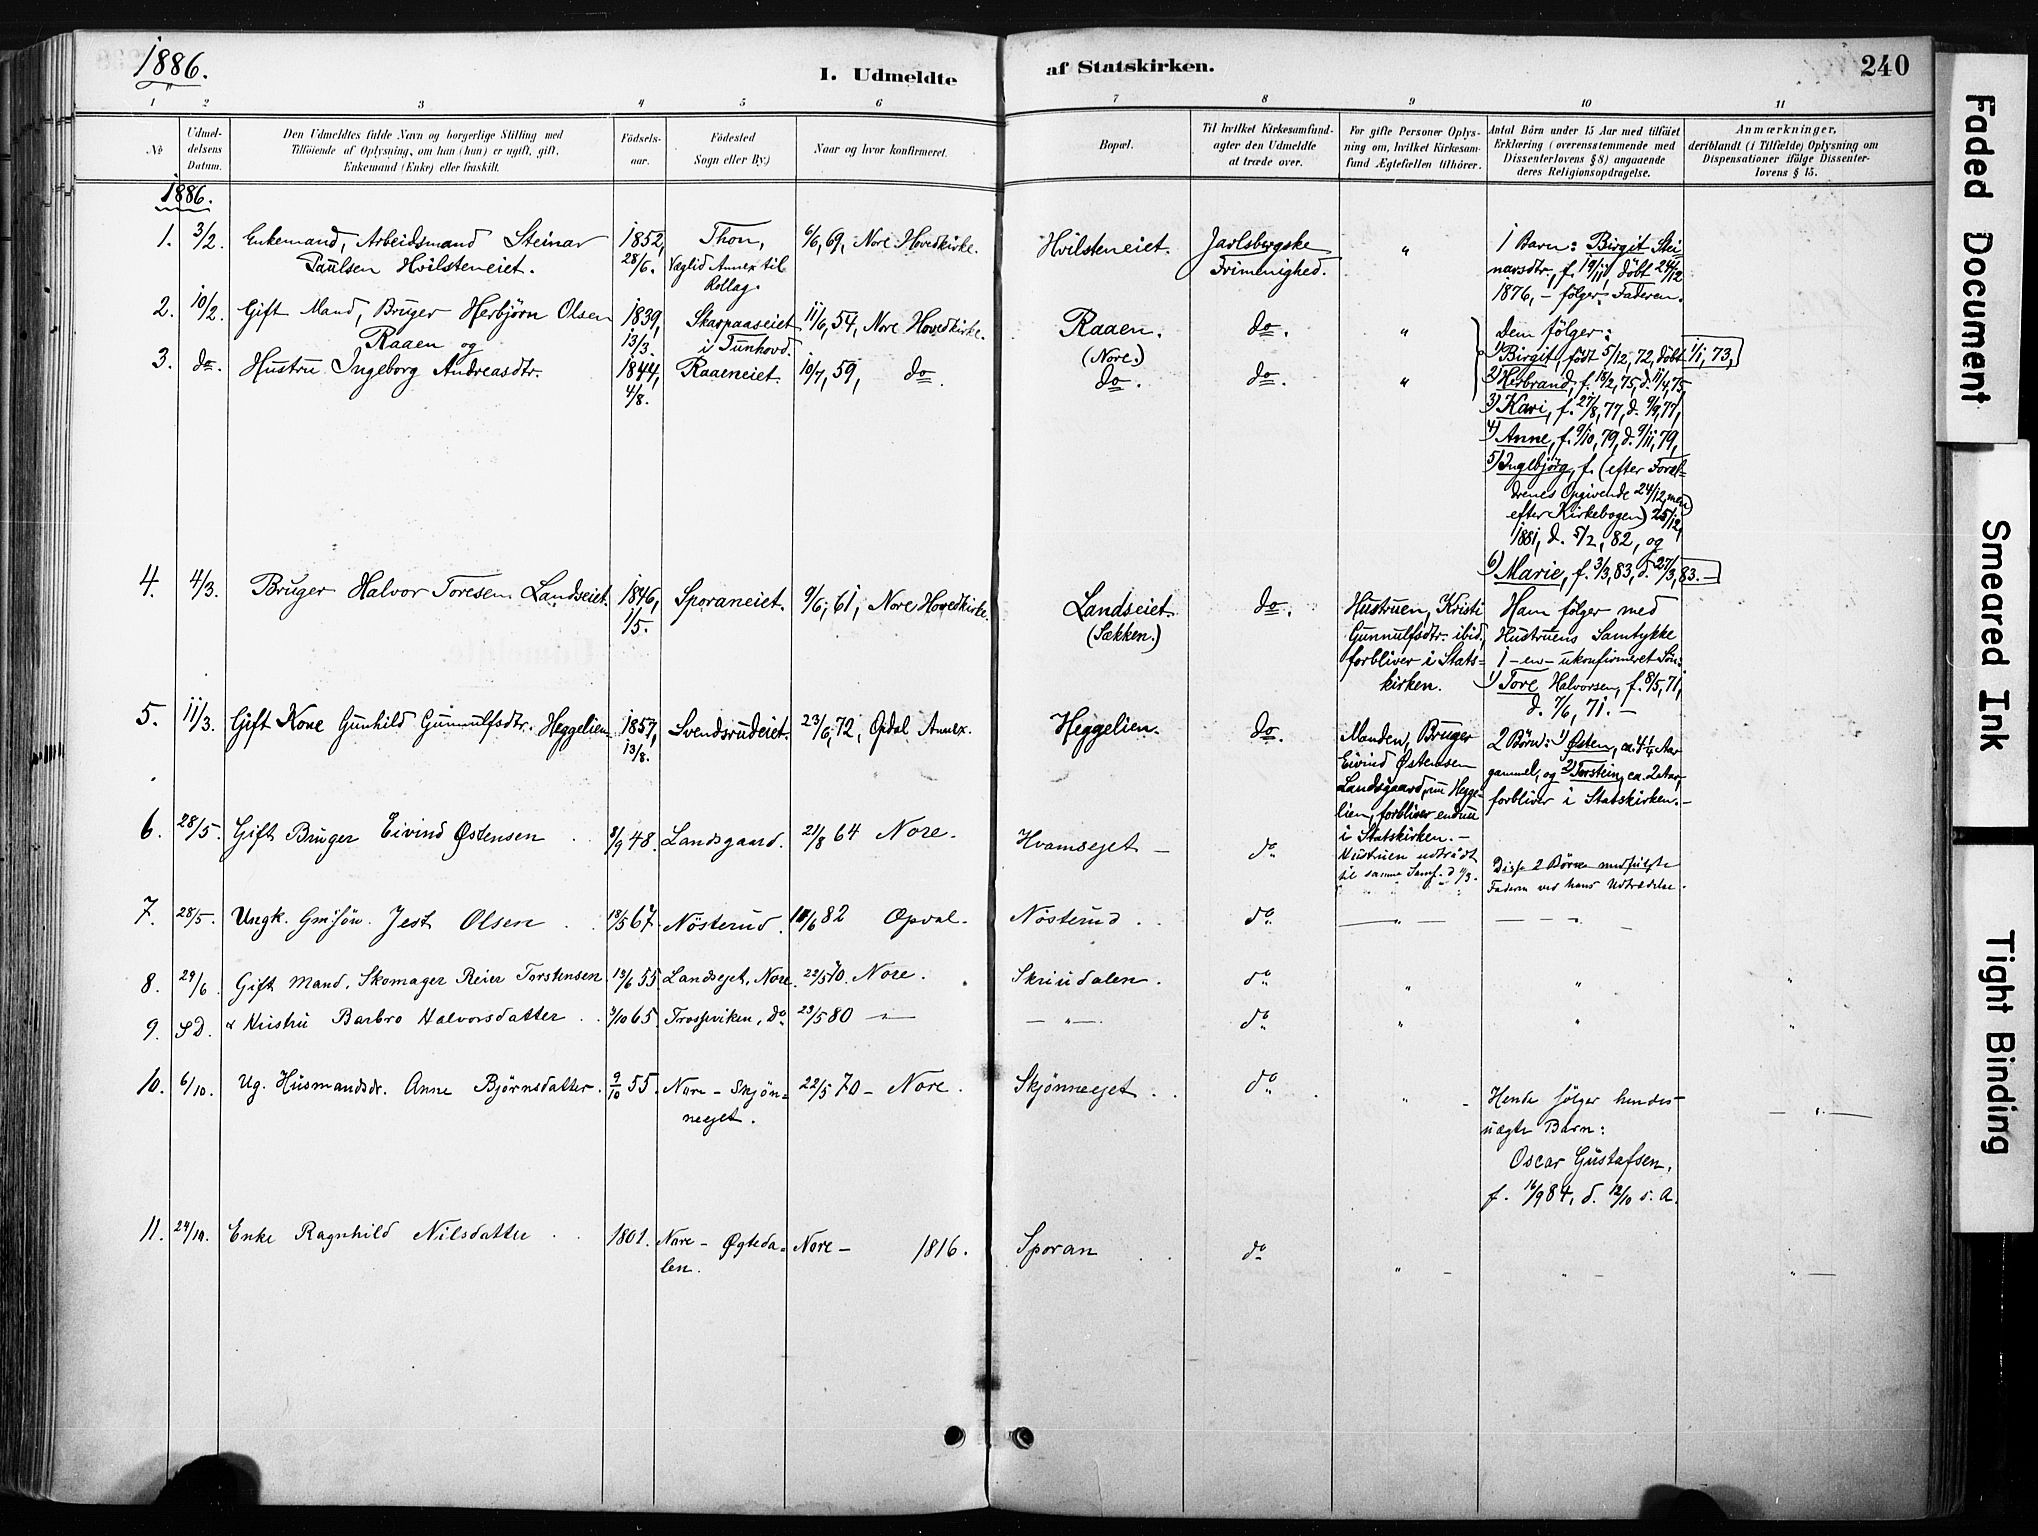 1886.
I. Udmeldte af Statskirken.
240
1 2 3 4 5 6 7 8 9 10 11
No
Udmel-
delsens
Datum.
Den Udmeldtes fulde Navn og borgerlige Stilling med
Tilföiende af Oplysning, om han (hun) er ugift, gift,
Enkemand (Enke) eller fraskilt.
Födsels-
aar.
Födested
Sogn eller By.)
Naar og hvor konfirmeret.
Bopæl.
Til hvilket Kirkesamfund-
agter den Udmeldte
at træde over.
For gifte Personer Oplys-
ning om, hvilket Kirkesam-
fund Ægtefællen tilhörer.
Antal Börn under 15 Aar med tilföiet
Erklæring (overensstemmende med
Dissenterlovens § 8) angaaende
deres Religionsopdragelse.
Anmærkninger,
deriblandt (i Tilfælde) Oplysning om
Dispensationer ifölge Dissenter-
lovens § 15.
1886.
1. 3/2. Enkemand, Arbeidsmand Steinar
Paulsen Hvilsteneiet.
1852,
28/6.
Thon,
Væglid Annex til
Rollag.
6/6, 69, Nore Hovedkirke.
Hvilsteneiet.
Jarlsbergske
Frimenighed.
"
1 Barn: Birgit Stei-
narsdtr., f. 19/11, döbt 24/12
1876, – følger Faderen.
2. 10/2. Gift Mand, Bruger Herbjörn Olsen
Raaen og
1839,
13/3.
Skarpaaseiet
i Tunhovd.
11/6, 54, Nore Hovedkirke.
Raaen.
(Nore.)
do.
"
Dem følger:
1) Birgit, født 5/12, 72, döbt 1/1, 73,
3. do. Hustru Ingeborg Andreasdtr.
1844,
4/8.
Raaeneiet.
10/7, 59, do.
do.
do.
"
2) Herbrand, f. 18/2, 75, d. 11/4, 75,
3) Kari, f. 27/8, 77, d. 9/9, 77,
4) Anne, f. 9/10, 79, d. 9/11, 79,
5) Ingebjörg, f. (efter Foræl-
drenes Opgivende 24/12, men
efter Kirkebogen) 25/12,
1881, d. 5/2, 82, og
6) Marie, f. 3/3, 83, d. 27/3, 83. –
4. 4/3. Bruger Halvor Toresen Landseiet.
1846,
1/5.
Sporaneiet.
9/6, 61, Nore Hovedkirke.
Landseiet.
(Sækken.)
do.
Hustruen, Kristi
Gunnulfsdtr. ibid.,
forbliver i Stats-
kirken.
Ham følger med
Hustruens Samtykke
1 – en – ukonfirmeret Søn:
1) Tore Halvorsen, f. 8/5, 71,
d. 7/6, 71. –
5. 11/3. Gift Kone Gunhild Gunnulfsdtr. Heggelien
1857,
13/8.
Svendsrudeiet.
23/6, 72, Opdal Annex.
Heggelien.
do.
Manden, Bruger
Eivind Østensen
Landsgaard, nu Hegge-
lien, forbliver endnu
i Statskirken. –
2 Børn: 1) Østen, ca. 4 1/4 Aar
gammel, og 2) Torstein, ca. 2 Aar,
forbliver i Statskirken. –
6. 28/5. Gift Bruger Eivind Østensen
8/9 48.
Landsgaard.
21/8 64 Nore.
Hvamsejet –
do
Hustruen udtraadt
til samme Samf. d. 11/3.
Disse 2 Börn medfulgte
Faderen ved hans Udtrædelse.
7. 28/5. Ungk. Gm:sön. Jest Olsen
18/5 67.
Nösterud.
18/6 82 Opdal.
Nösterud.
do
– " –
– " –
8. 29/6. Gift Mand, Skomager Reier Torstensen
13/6 55.
Landsejet, Nore.
22/5 70. Nore.
Skriudalen.
do
"
"
"
9. S.D. & Hustru Barbro Halvorsdatter
3/10 65.
Trosseviken, do
23/5 80 – " –
– " –
do
"
"
"
10. 6/10. Ug. Husmandsdr. Anne Bjørnsdatter.
9/10 55.
Nore – Skjön-
neejet.
22/5 70 – Nore.
Skjönneejet.
do
"
Hende følger hendes
uægte Barn:
Oscar Gustafsen,
f. 16/9 84, d. 12/10 s. A.
– " –
11. 24/10. Enke Ragnhild Nilsdatter
1801.
Nore – Øgteda-
len.
Nore – 1816.
Sporan
do
" –
" –
" –
Faded Document
Smeared Ink
Tight Binding